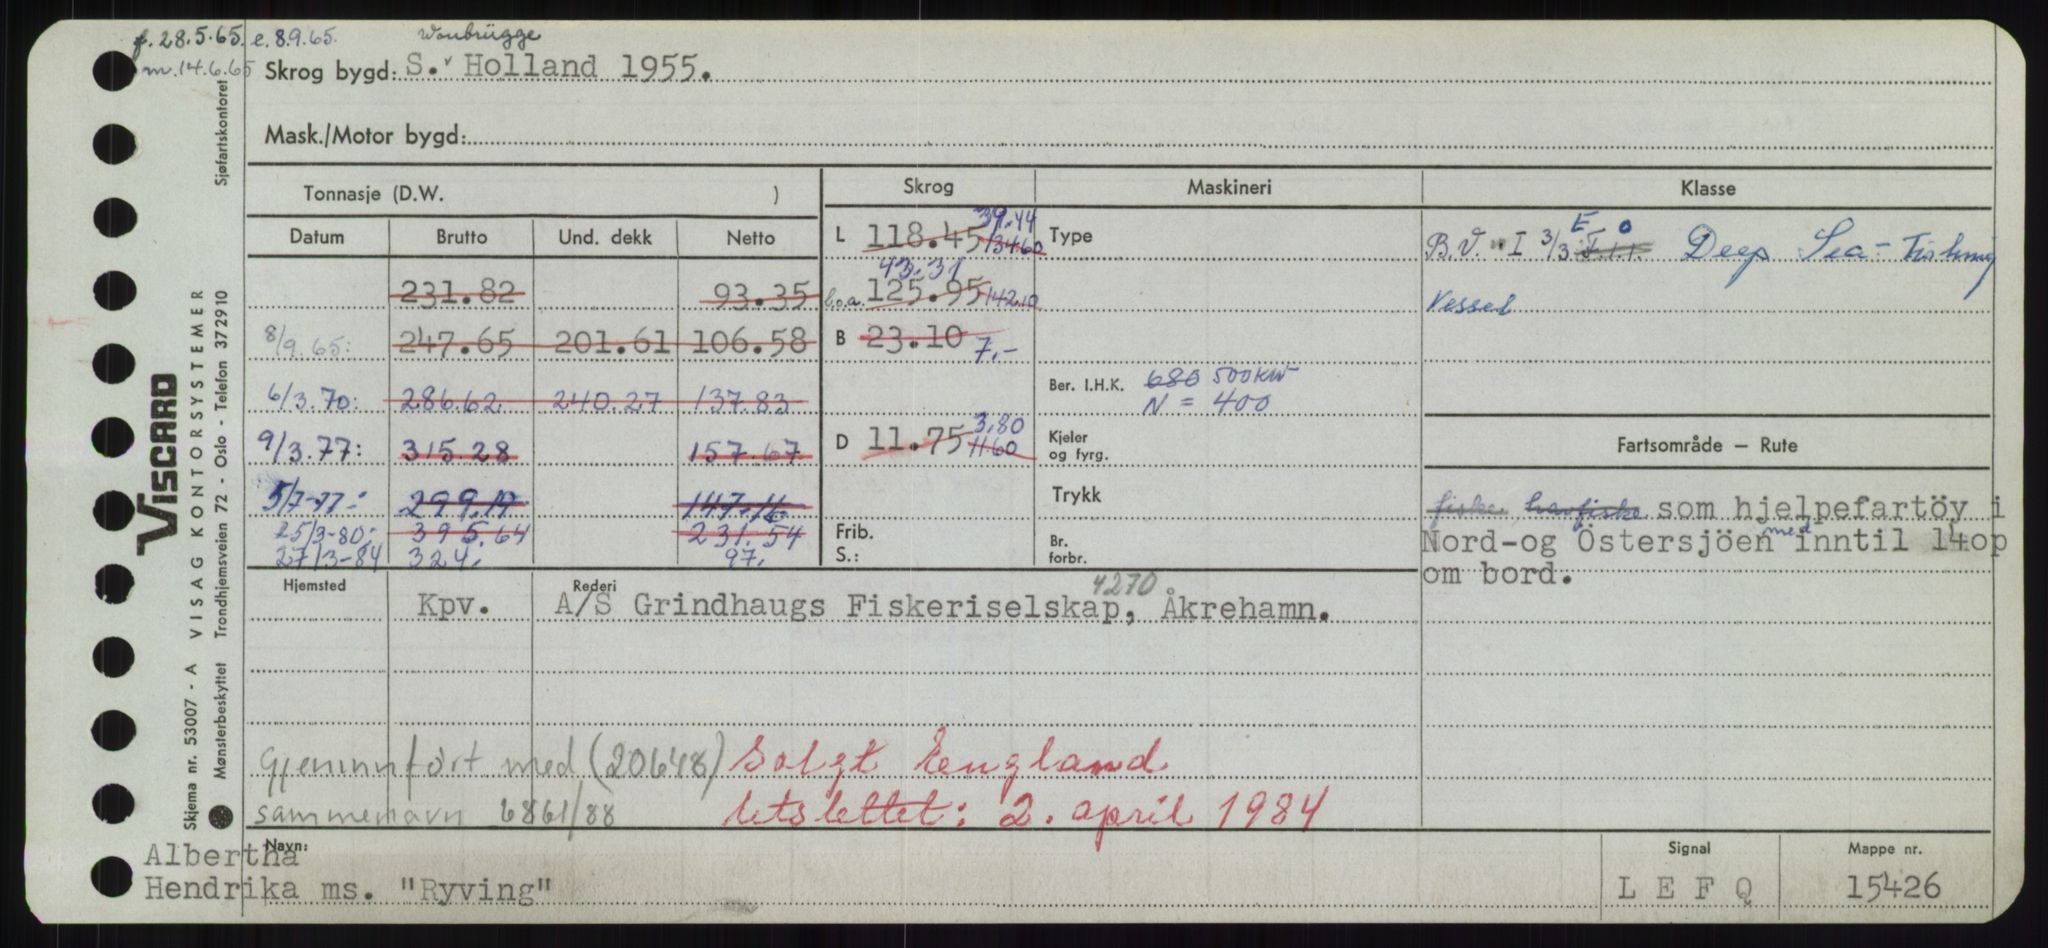 f. 28.5.65. e. 8.9.65.
m. 14.6.65
Skrog bygd: S. Holland 1955.
Mask./Motor bygd:
Tonnasje (D.W. )
Skrog
Maskineri
Klasse
Datum Brutto Und. dekk Netto
231.82 93.35
8/9.65: 247.65 201.61 106.58
6/3.70: 286.62 240.27 137.83
9/3.77: 315.28 157.67
5/7-77: 299.17 147.16
25/3-80: 395.64 231.54
27/3-84 324. 97.
L 118.45 134.60 39.44
l.o.a. 125.95 142.10 43.31
B 23.10 7.-
D 11.75 11.60 3.80
Frib.
S.:
Type
Ber. I.H.K. 680 500 KW
N = 400
Kjeler
og fyrg.
Trykk
Br.
forbr.
B.V. I 3/3 E O Deep Sea-Fishing
Vessel
Fartsområde – Rute
fiske havfiske som hjelpefartöy i
Nord-og Östersjöen med inntil 14op
om bord.
Hjemsted Rederi
Kpv. A/S Grindhaugs Fiskeriselskap, 4270 Åkrehamn.
Gjennnført med (20648) Solgt England
samme navn 6861/88 Utslettet: 2. april 1984
Navn: Signal Mappe nr.
Albertha
Hendrika ms. "Ryving" L E F Q 15426
Skjema nr. 53007 - A VISAG KONTORSYSTEMER
Mønsterbeskyttet Trondhjemsveien 72 - Oslo - Telefon 372910 Sjøfartskontoret
VISCARD